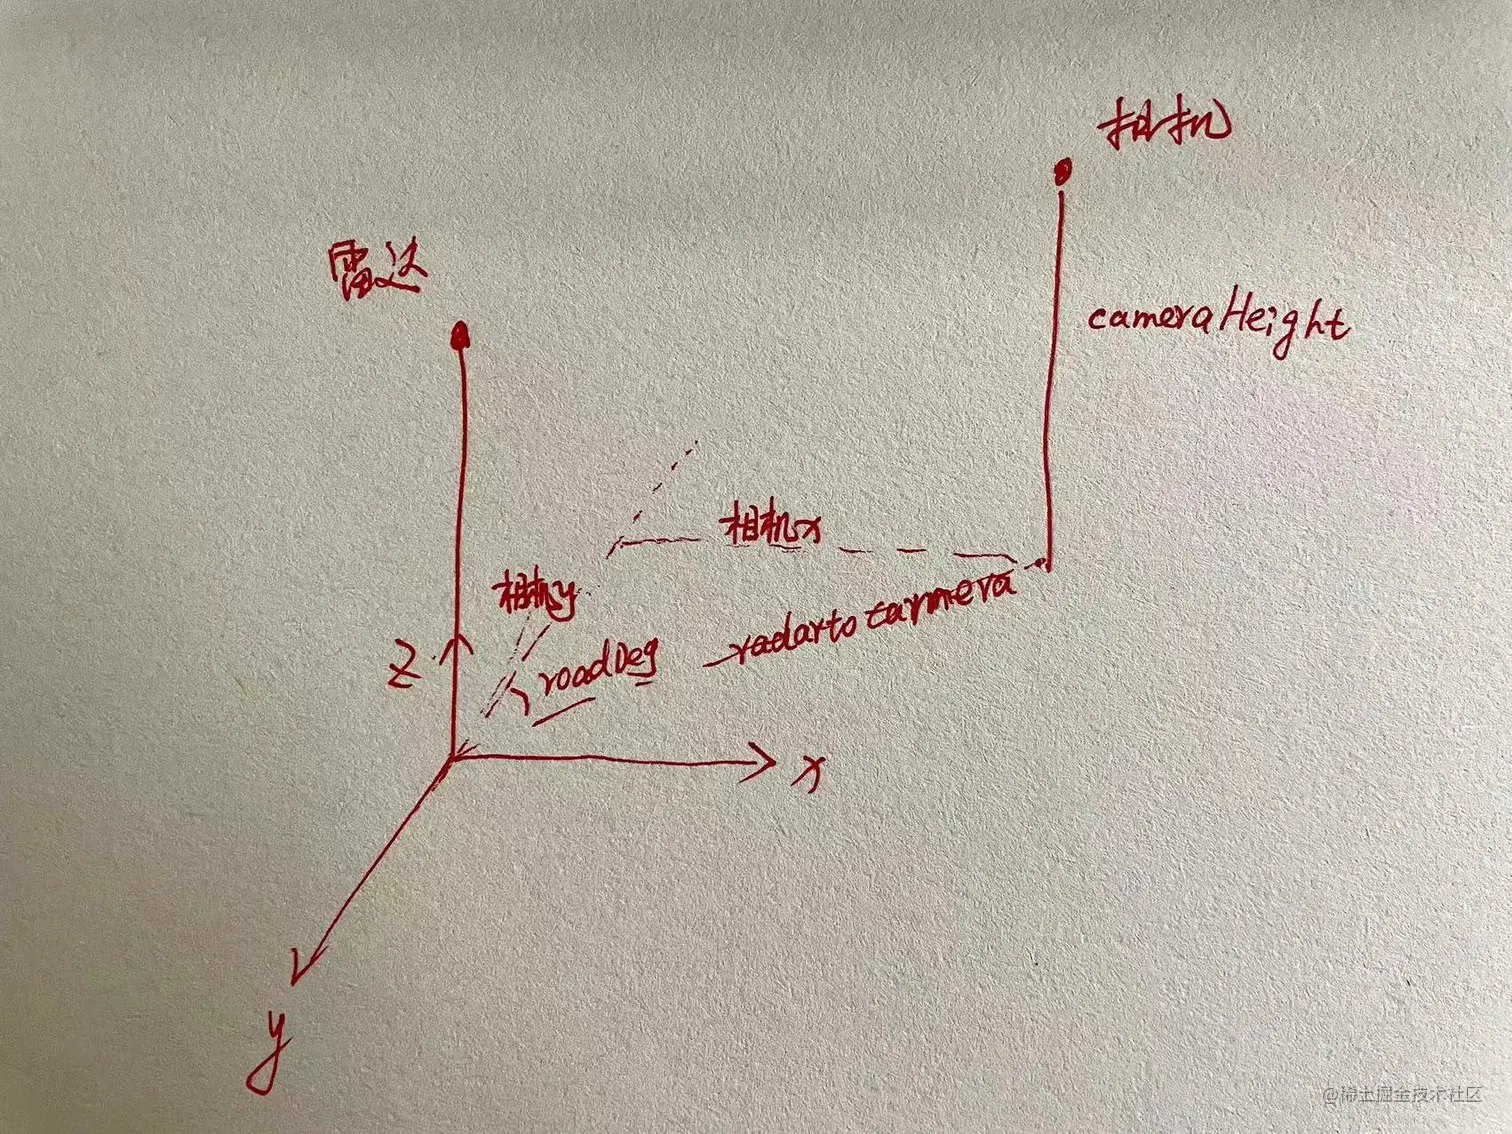 相机
雷达
cameraHeight
相机x
相机y
radartocamera
roadDeg
z
x
y
@稀土掘金技术社区